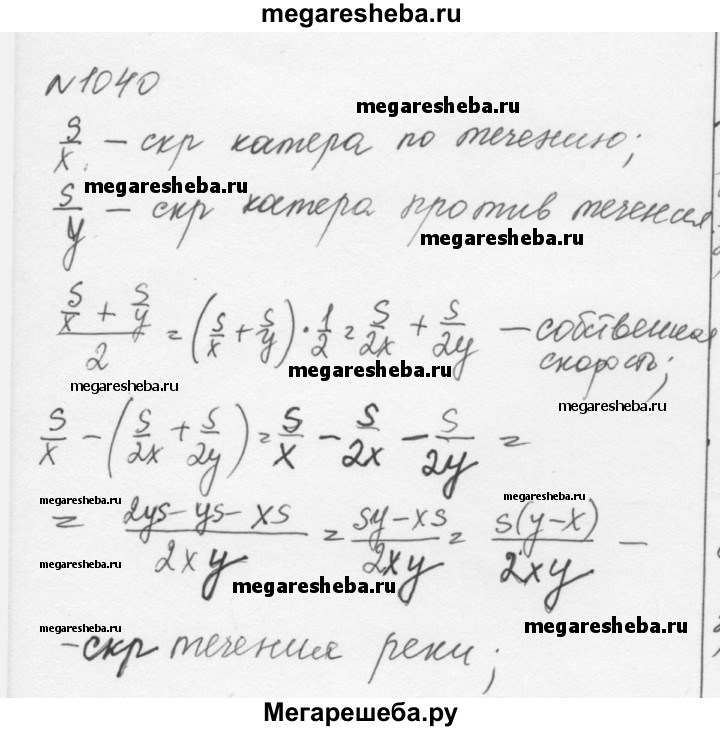 megaresheba.ru
N1040
megaresheba.ru
S/x - скр катера по течению;
megaresheba.ru
S/y - скр катера против течения
megaresheba.ru
(S/x + S/y)/2 = (S/x + S/y) · 1/2 = S/2x + S/2y - собственная скорость;
megaresheba.ru
megaresheba.ru
megaresheba.ru
S/x - (S/2x + S/2y) = S/x - S/2x - S/2y =
megaresheba.ru
megaresheba.ru
= (2ys - ys - xs)/2xy = (sy - xs)/2xy = s(y-x)/2xy -
megaresheba.ru
megaresheba.ru
megaresheba.ru
megaresheba.ru
- скр течения реки;
Мегарешеба.ру